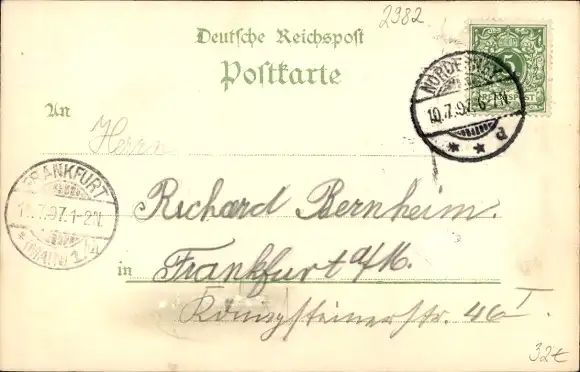 2982
Deutsche Reichspost
Postkarte
NORDERNEY
10.7.97. 6-7N
d
REICHSPOST
5
An
Herrn
FRANKFURT
11.7.97. 1-2N
(MAIN) 1.
Richard Bernheim.
in Frankfurt a/M.
Königsteinerstr. 46 I.
32€